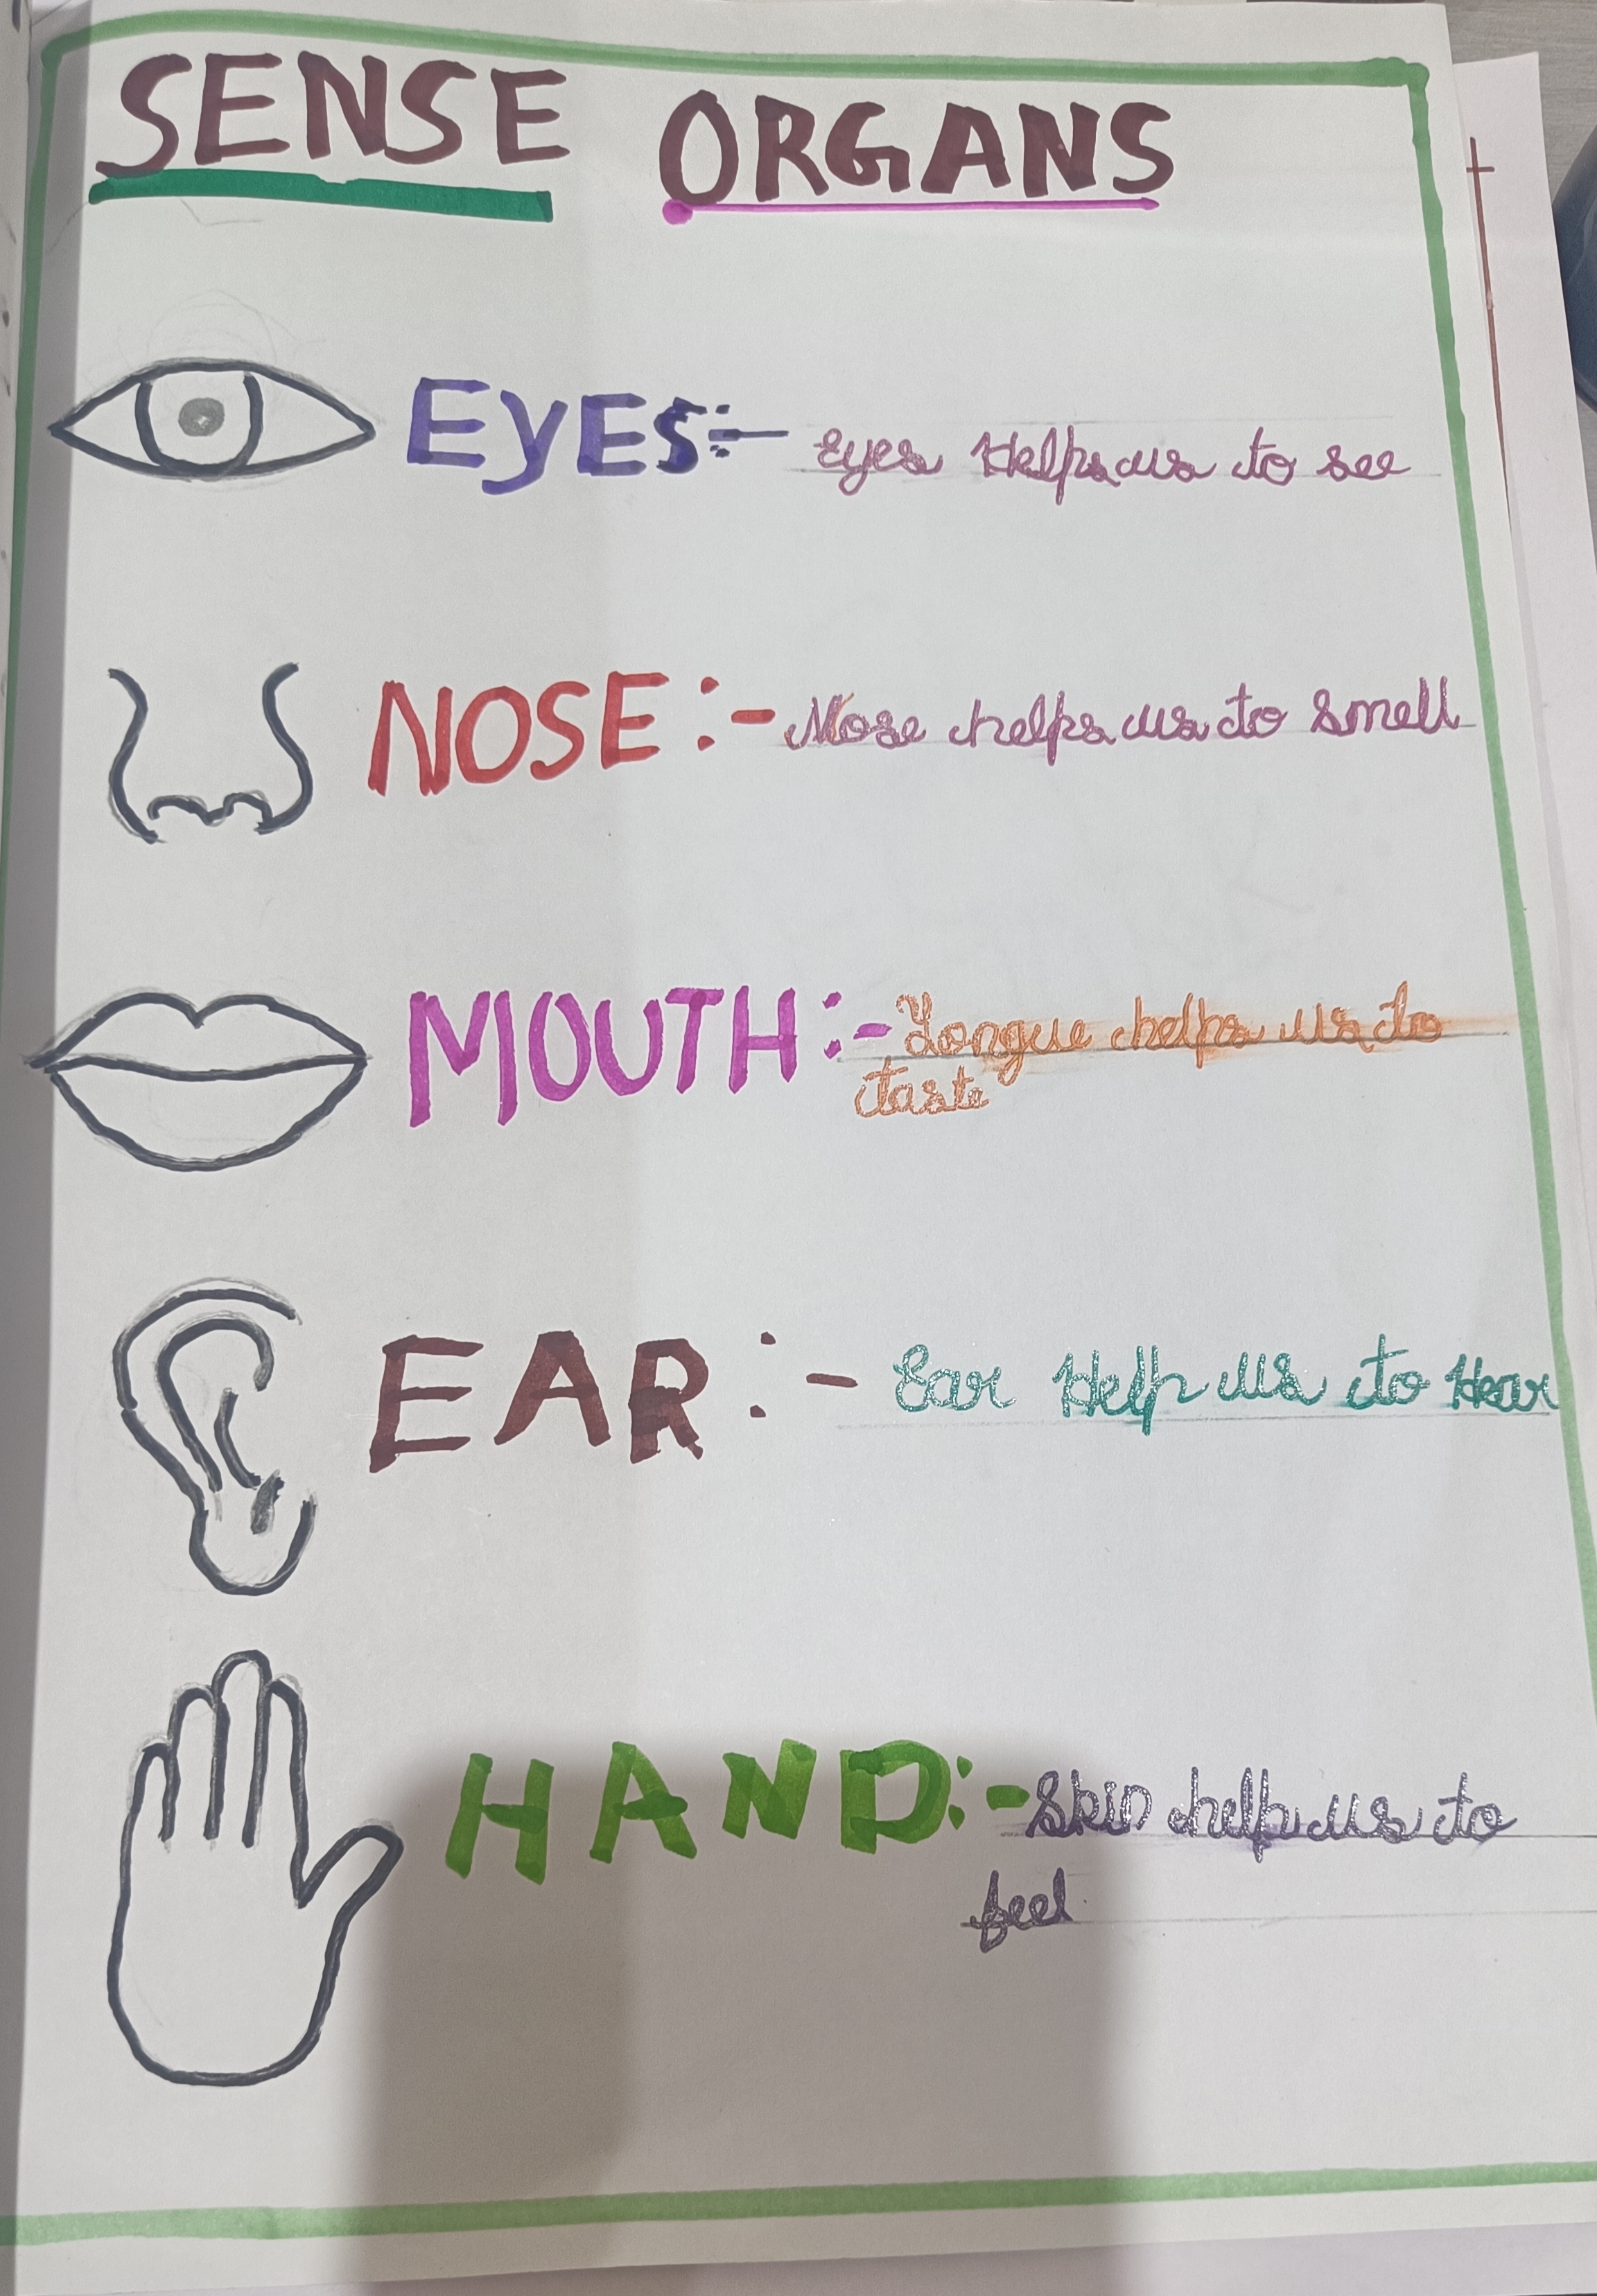 SENSE ORGANS
EYES:- Eyes Helps us to see
NOSE:- Nose helps us to smell
MOUTH:- Tongue helps us to
taste
EAR:- Ear Help us to Hear
HAND:- Skin help us to
feel